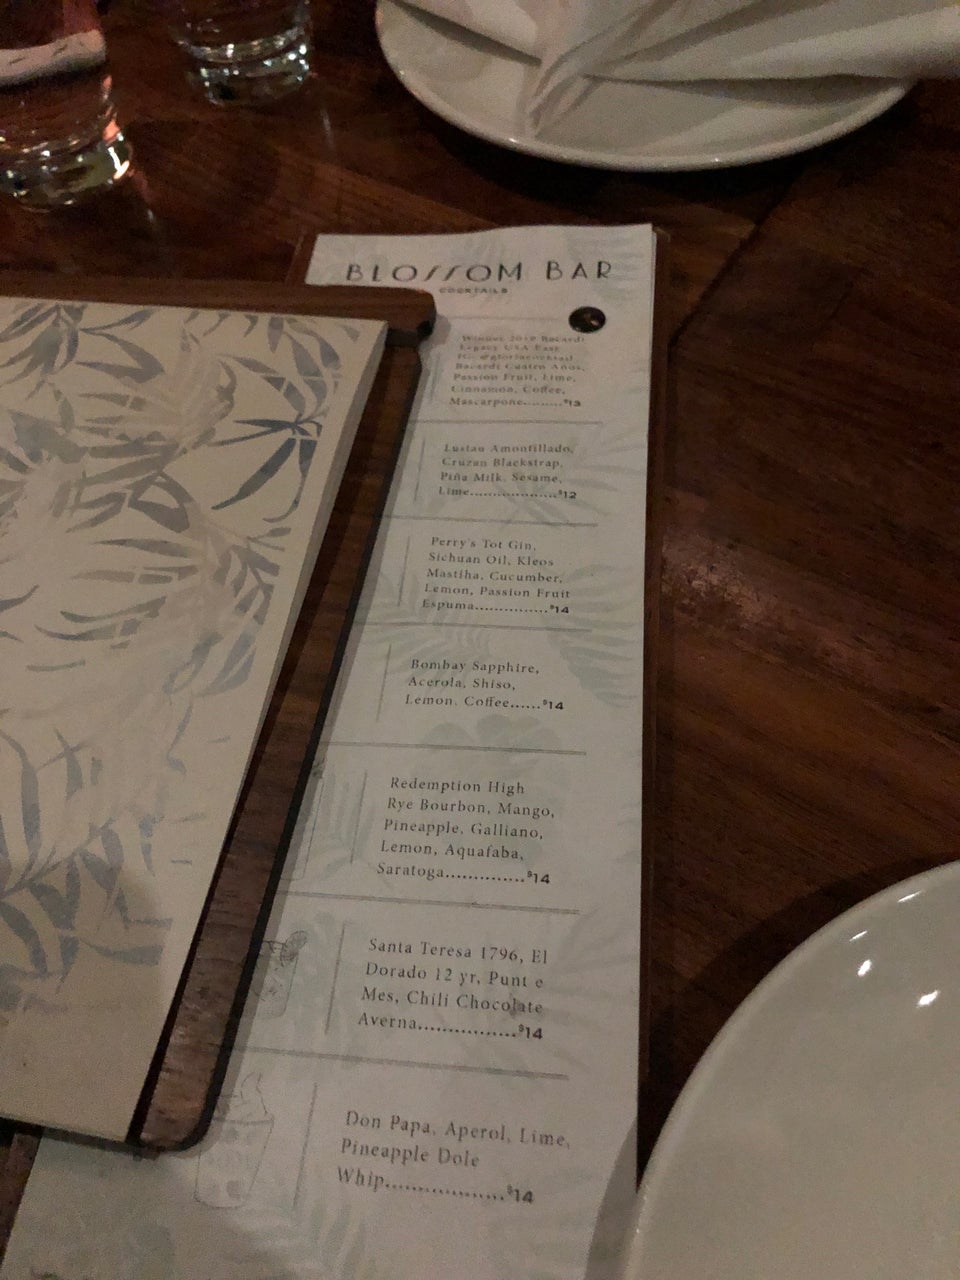 BLOSSOM BAR
COCKTAILS
Winner 2019 Bacardi
Legacy USA East
IG: @gloriacocktail
Bacardi Cuatro Anos,
Passion Fruit, Lime,
Cinnamon, Coffee,
Mascarpone.........$13
Lustau Amontillado,
Cruzan Blackstrap,
Piña Milk, Sesame,
Lime....................$12
Perry's Tot Gin,
Sichuan Oil, Kleos
Mastiha, Cucumber,
Lemon, Passion Fruit
Espuma...............$14
Bombay Sapphire,
Acerola, Shiso,
Lemon, Coffee......$14
Redemption High
Rye Bourbon, Mango,
Pineapple, Galliano,
Lemon, Aquafaba,
Saratoga..............$14
Santa Teresa 1796, El
Dorado 12 yr, Punt e
Mes, Chili Chocolate
Averna.................$14
Don Papa, Aperol, Lime,
Pineapple Dole
Whip...................$14